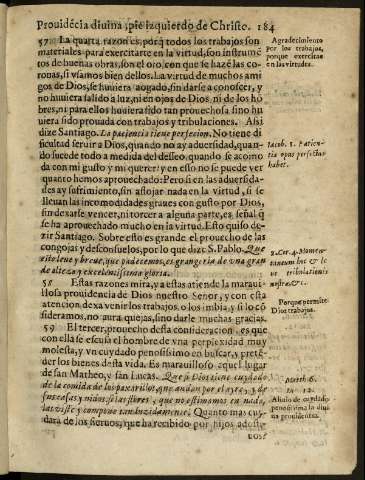 Prouidẽcia diuina, pie izquierdo de Christo. 184
57 La quarta razon es, porq̃ todos los trabajos son
materiales para exercitarte en la virtud, son instrumẽ
tos de buenas obras, son el oro con que se hazẽ las co-
ronas, si vsamos bien dellos. La virtud de muchos ami
gos de Dios, se huuiera ahogado, sin darse a conoscer, y
no huuiera salido à luz, ni en ojos de Dios, ni de los hõ
bres, ni para ellos huuiera sido tan prouechosa, sino hu
uiera sido prouada con trabajos y tribulaciones. Asi
dize Santiago. La paciencia tiene perfecion. No tiene di
ficultad seruir a Dios, quando no ay aduersidad, quan-
do sucede todo a medida del desseo, quando se acomo
da con mi gusto y mi querer, y en esto no se puede ver
quanto hemos aprouechado: Pero si en las aduersida-
des ay sufrimiento, sin aflojar nada en la virtud, si se
lleuan las incomodidades graues con gusto por Dios,
sin dexarse vencer, ni torcer a alguna parte, es señal q̃
se ha aprouechado mucho en la virtud. Esto quiso de-
zir Santiago. Sobre esto es grande el prouecho de las
congojas y desconsuelos, por lo que dize S. Pablo. Que
esto leue y breue, que padecemos, es grangeria de vna gran
de alteza y excelentissima gloria.
58 Estas razones mira, y a estas atiende la maraui-
llosa prouidencia de Dios nuestro Señor, y con esta
atencion dexa venir los trabajos, o los imbia, y si lo cõ
sideramos, no aura quejas, sino darle muchas gracias.
59 El tercer prouecho desta consideracion, es que
con ella se escusa el hombre de vna perplexidad muy
molesta, y vn cuydado penosissimo en buscar, y pretẽ-
der los bienes desta vida. Es marauilloso aquel lugar
de san Matheo, y san Lucas. Que si Dios tiene cuydado
de la comida de los paxarillos, que andan por el ayre, y de
sus casas y nidos, si las flores, que no estimamos en nada,
las viste y compone tan luzidamente: Quanto mas cuy
dara de los sieruos, que ha recibido por hijos adopti-
uos?
Agradecimiento
por los trabajos,
porque exercitan
en las virtudes.
Iacob. 1. Patien-
tia opus perfectum
habet.
2. Cor. 4. Momen-
taneum hoc & le
ue tribulationis
nostræ &c.
Porque permite
Dios trabajos.
Matth. 6.
Lu. 12.
Aliuio de cuydado
penosissimo la diui
na prouidencia.